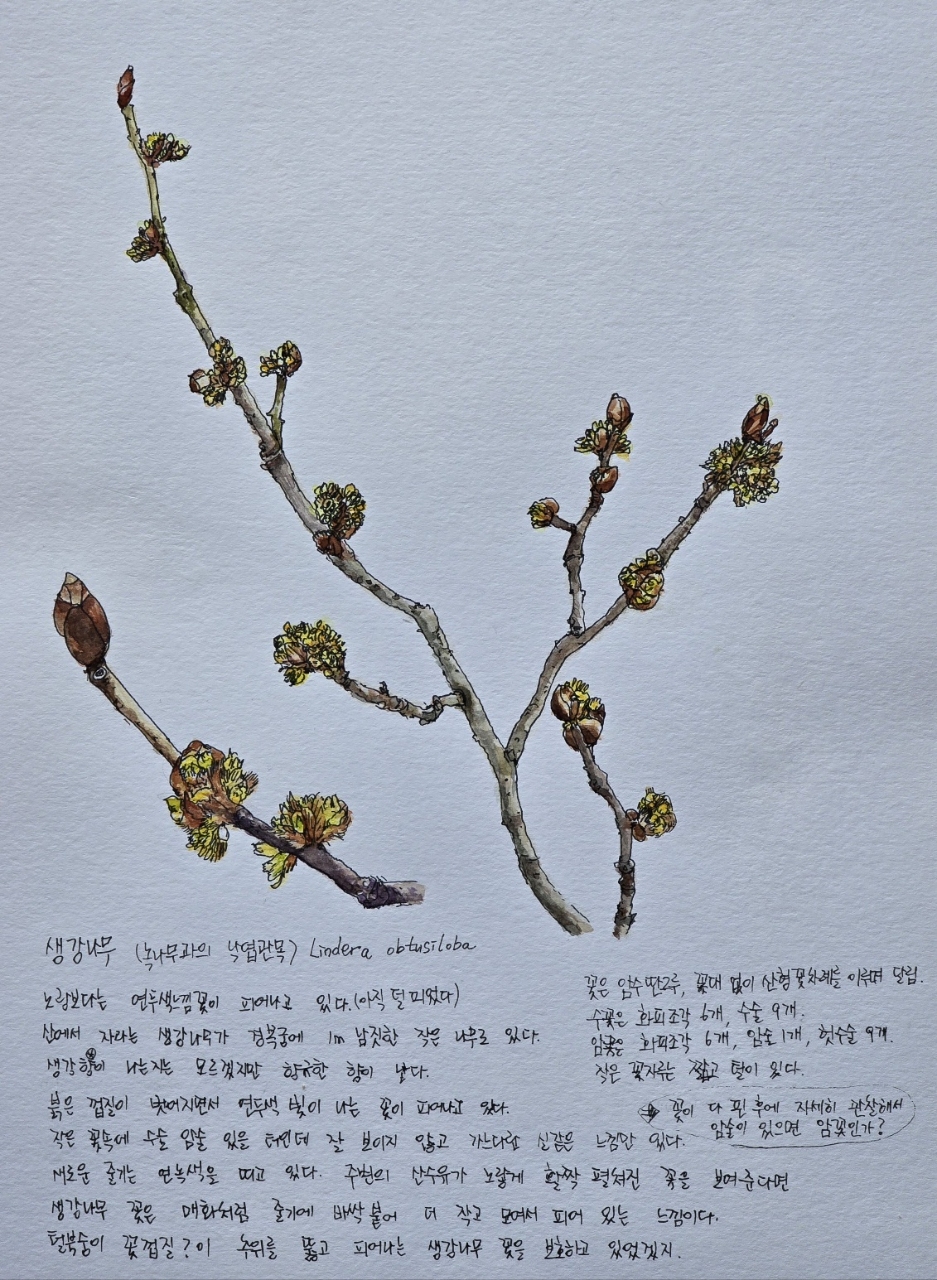 생강나무 (녹나무과의 낙엽관목) Lindera obtusiloba
노랑보다는 연두색느낌 꽃이 피어나고 있다. (아직 덜 피었다)
산에서 자라는 생강나무가 경복궁에 1m 남짓한 작은 나무로 있다.
생강향이 나는지는 모르겠지만 향긋한 향이 난다.
붉은 껍질이 벗어지면서 연두색 빛이 나는 꽃이 피어나고 있다.
작은 꽃속에 수술 암술 있을 터인데 잘 보이지 않고 가느다란 실같은 느낌만 있다.
새로운 줄기는 연녹색을 띠고 있다. 주변의 산수유가 노랗게 활짝 펼쳐진 꽃을 보여준다면
생강나무 꽃은 매화처럼 줄기에 바싹 붙어 더 작고 모여서 피어 있는 느낌이다.
털북숭이 꽃껍질? 이 추위를 뚫고 피어나는 생강나무 꽃을 보호하고 있었겠지.
꽃은 암수딴그루, 꽃대 없이 산형꽃차례를 이루며 달림.
수꽃은 화피조각 6개, 수술 9개.
암꽃은 화피조각 6개, 암술 1개, 헛수술 9개.
작은 꽃자루는 짧고 털이 있다.
꽃이 다 핀 후에 자세히 관찰해서
암술이 있으면 암꽃인가?